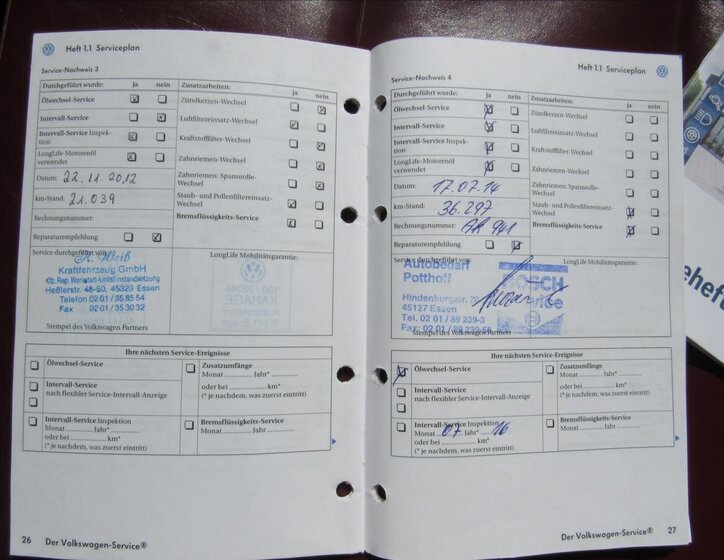 Heft 1.1 Serviceplan
Service-Nachweis 3
Durchgeführt wurde: ja nein Zusatzarbeiten: ja nein
Ölwechsel-Service Zündkerzen-Wechsel
Intervall-Service Luftfiltereinsatz-Wechsel
Intervall-Service Inspek-
tion Kraftstofffilter-Wechsel
LongLife-Motorenöl
verwendet Zahnriemen-Wechsel
Datum: 22.11.2012 Zahnriemen-/Spannrolle-
Wechsel
km-Stand: 21.039 Staub- und Pollenfiltereinsatz-
Wechsel
Rechnungsnummer: Bremsflüssigkeits-Service
Reparaturempfehlung
Service durchgeführt von: LongLife Mobilitätsgarantie:
Kraftfahrzeug GmbH
Kfz. Rep. Werkstatt-Unfallinstandsetzung
Heßlerstr. 48-50, 45329 Essen
Telefon 02 01 / 35 85 54
Fax 02 01 / 35 30 32
Stempel des Volkswagen Partners
Ihre nächsten Service-Ereignisse
Ölwechsel-Service Zusatzumfänge
Monat Jahr*
Intervall-Service
nach flexibler Service-Intervall-Anzeige oder bei km*
(* je nachdem, was zuerst eintritt)
Intervall-Service Inspektion Bremsflüssigkeits-Service
Monat Jahr* Monat Jahr
oder bei km*
(* je nachdem, was zuerst eintritt)
26 Der Volkswagen-Service®
Heft 1.1 Serviceplan
Service-Nachweis 4
Durchgeführt wurde: ja nein Zusatzarbeiten: ja nein
Ölwechsel-Service Zündkerzen-Wechsel
Intervall-Service Luftfiltereinsatz-Wechsel
Intervall-Service Inspek-
tion Kraftstofffilter-Wechsel
LongLife-Motorenöl
verwendet Zahnriemen-Wechsel
Datum: 17.07.14 Zahnriemen-/Spannrolle-
Wechsel
km-Stand: 36.297 Staub- und Pollenfiltereinsatz-
Wechsel
Rechnungsnummer: Bremsflüssigkeits-Service
Reparaturempfehlung
Service durchgeführt von: LongLife Mobilitätsgarantie:
Autobedarf
Potthoff
Hindenburgstr.
45127 Essen
Tel. 02 01 / 89 239-3
Fax: 02 01 / 89 239-55
Stempel des Volkswagen Partners
Ihre nächsten Service-Ereignisse
Ölwechsel-Service Zusatzumfänge
Monat Jahr*
Intervall-Service
nach flexibler Service-Intervall-Anzeige oder bei km*
(* je nachdem, was zuerst eintritt)
Intervall-Service Inspektion Bremsflüssigkeits-Service
Monat 07 Jahr* 16 Monat Jahr
oder bei km*
(* je nachdem, was zuerst eintritt)
Der Volkswagen-Service® 27